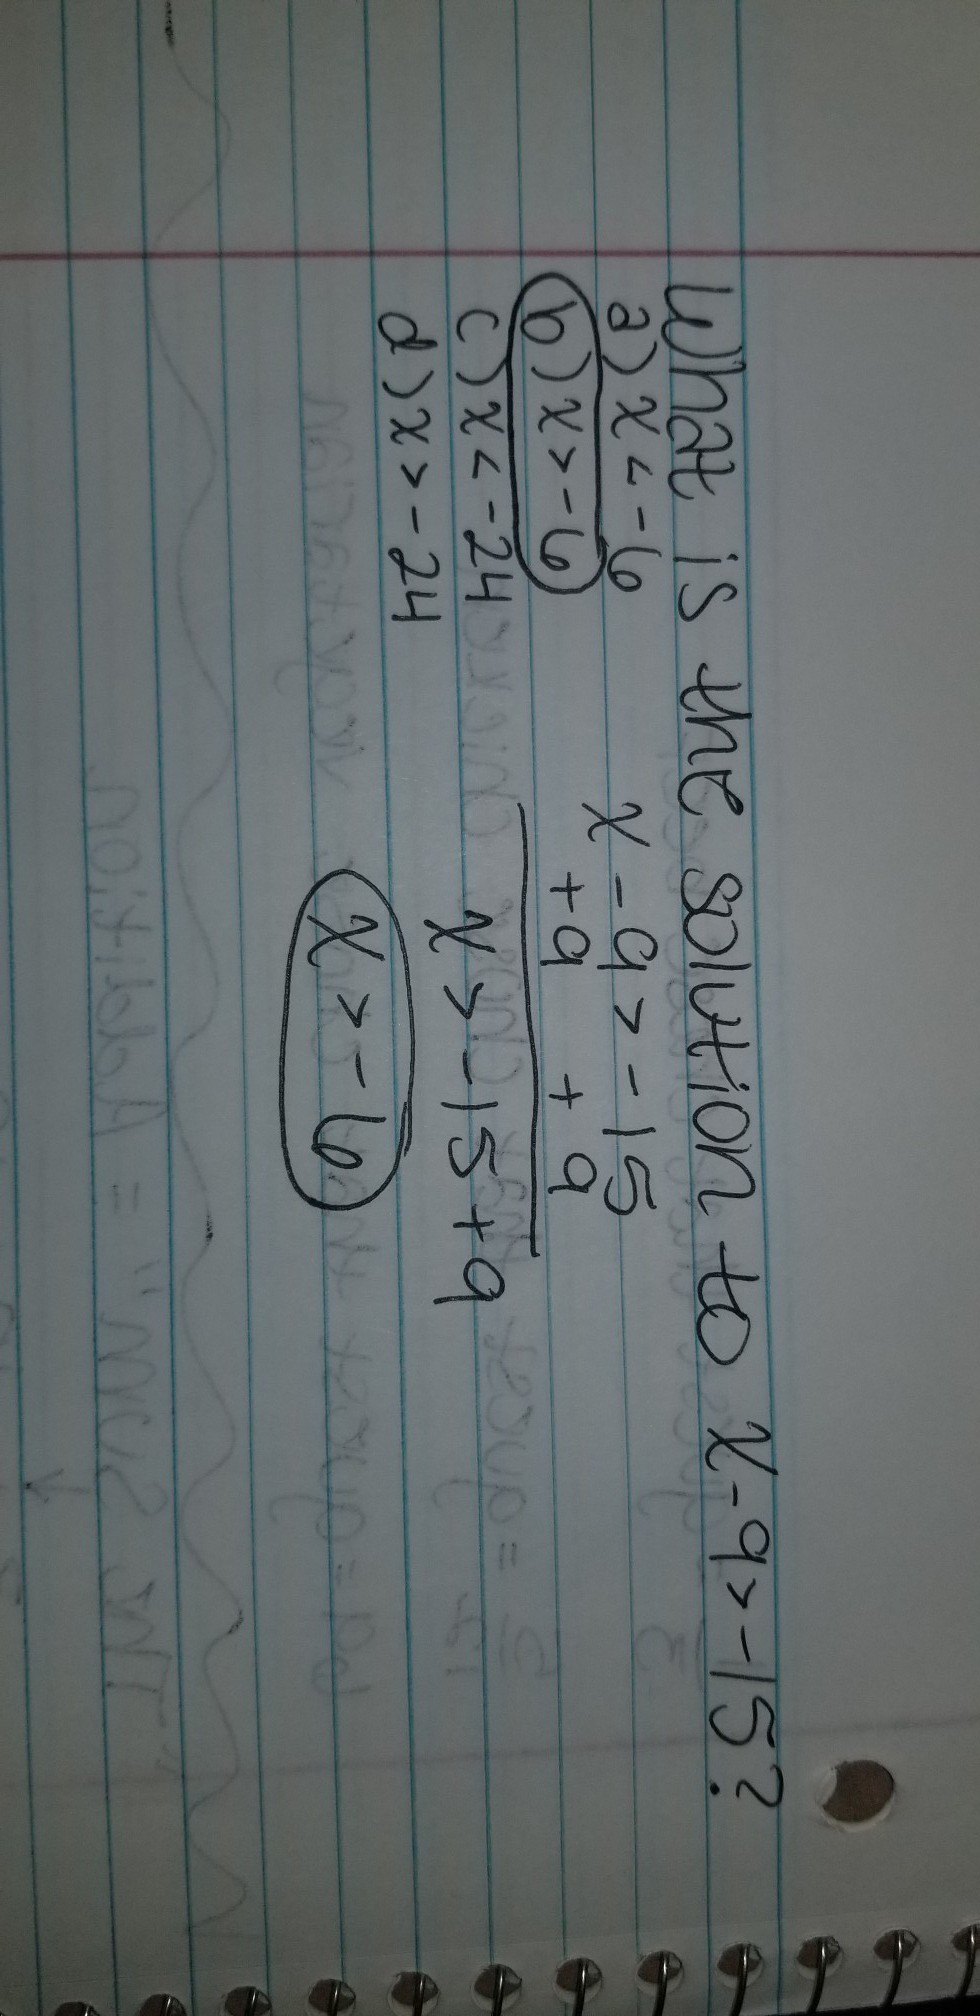 What is the solution to x-9>-15?
a) x < -6
b) x > -6
c) x < -24
d) x > -24
x - 9 > -15
+9 +9
x > -15+9
x > -6